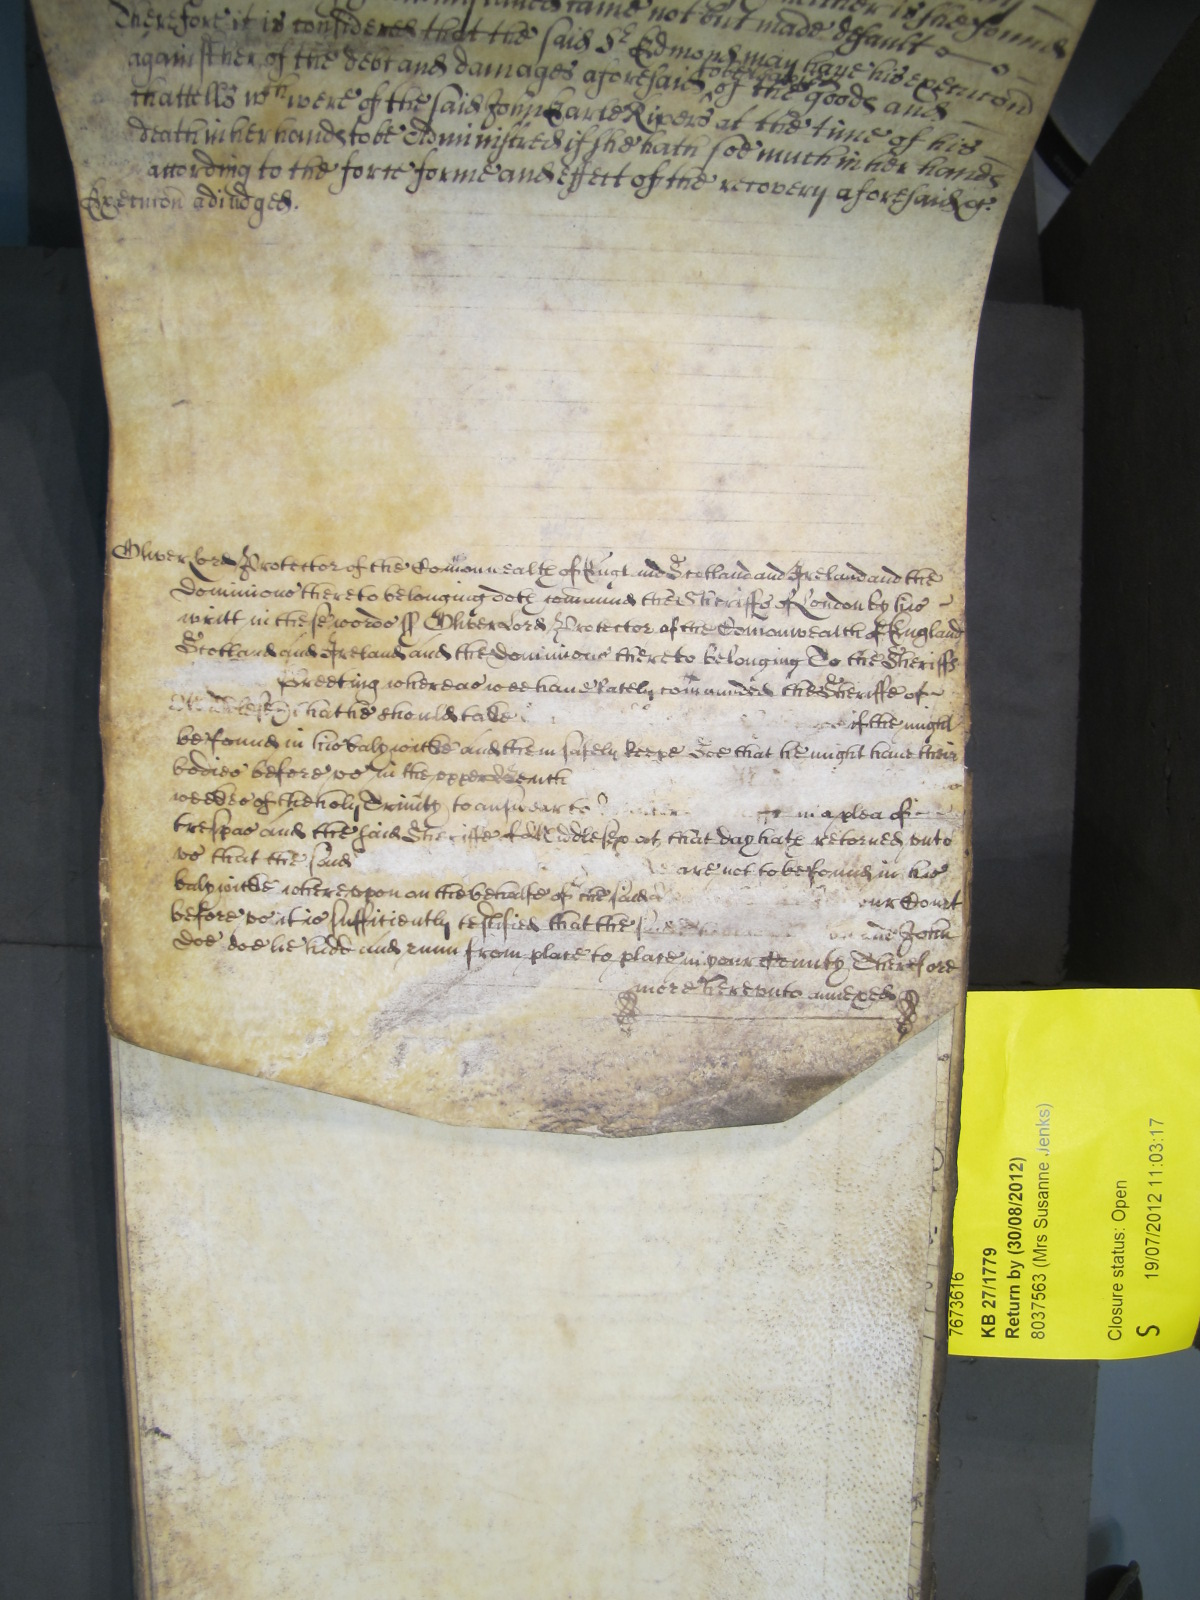 came not but made default
Therefore it is considered that the said Sr Edmond may have his execucon
against her of the debt and damages aforesaid to be levied of the goods and
chattells wch were of the said John Earle Rivers at the time of his
death in her hands to be Administred if she hath soe much in her hands
according to the force forme and effect of the recovery aforesaid &c.
Execucon adiudged.
Oliver Lord Protector of the Comonwealth of England Scotland and Ireland and the
Dominions thereto belonging doth command the Sheriffs of London by his
writt in these words ss Oliver Lord Protector of the Comonwealth of England
Scotland and Ireland and the Dominions thereto belonging To the Sheriffs
Greeting whereas wee have lately commanded the Sheriffe of
Middlesex that he should take if the might
be found in his balywicke and them safely keepe Soe that he might have their
bodies before us in the
weekes of the holy Trinity to answear to in a plea of
trespas and the said Sheriffe of Middlesex at that day hath retorned unto
us that the said are not to be found in his
balywicke whereupon on the behalfe of the said our Court
before us it is sufficiently testified that the said and John
Doe doe lie hidd and runn from place to place in your County Therefore
more hereunto annexed
7673616
KB 27/1779
Return by (30/08/2012)
8037563 (Mrs Susanne Jenks)
Closure status: Open
S 19/07/2012 11:03:17